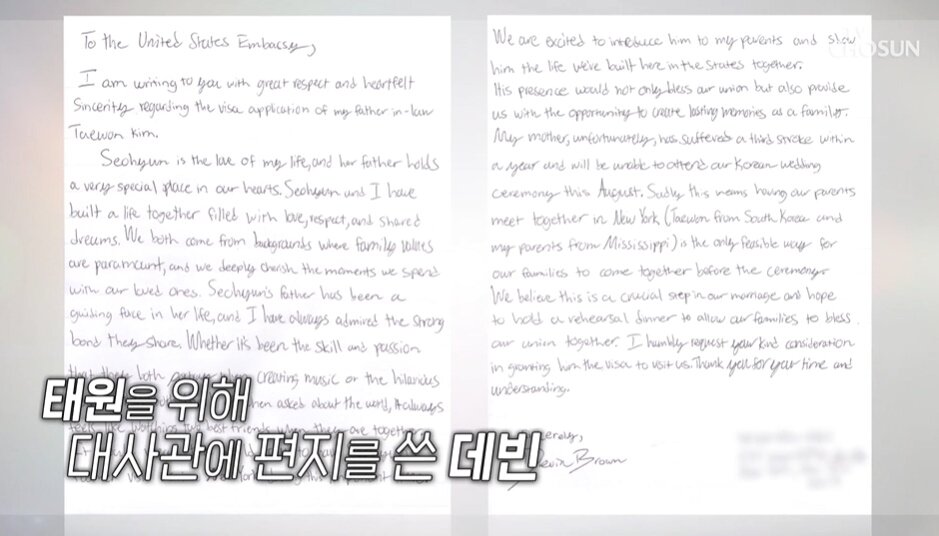 To the United States Embassy,
I am writing to you with great respect and heartfelt
Sincerity regarding the visa application of my father in-law
Taewon Kim.
Seohyun is the love of my life, and her father holds
a very special place in our hearts. Seohyun and I have
built a life together filled with love, respect, and shared
dreams. We both come from backgrounds where family values
are paramount, and we deeply cherish the moments we spend
with our loved ones. Seohyun's father has been a
guiding force in her life, and I have always admired the strong
bond they share. Whether it's been the skill and passion
that they both when creating music or the hilarious
when asked about the world, it always
best friends when they are together
We are excited to introduce him to my parents and show
him the life we've built here in the States together.
His presence would not only bless our union but also provide
us with the opportunity to create lasting memories as a family.
My mother, unfortunately, has suffered a third stroke within
a year and will be unable to attend our Korean wedding
ceremony this August. Sadly this means having our parents
meet together in New York (Taewon from South Korea and
my parents from Mississippi) is the only feasible way for
our families to come together before the ceremony.
We believe this is a crucial step in our marriage and hope
to hold a rehearsal dinner to allow our families to bless
our union together. I humbly request your kind consideration
in granting him the visa to visit us. Thank you for your time and
understanding.
Devin Brown
CHOSUN
태원을 위해
대사관에 편지를 쓴 데빈